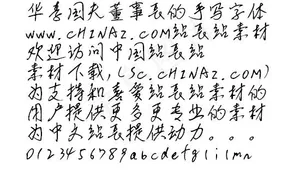 华喜国夫董事长的手写字体
www.cHINAZ.cOM站长站素材
欢迎访问中国站长站
素材下载,(Sc.cHINAZ.cOM)
为支持和喜爱站长站素材的
用户提供更多更专业的素材
为中文站长提供动力。。。
0123456789abcdefgliilmn